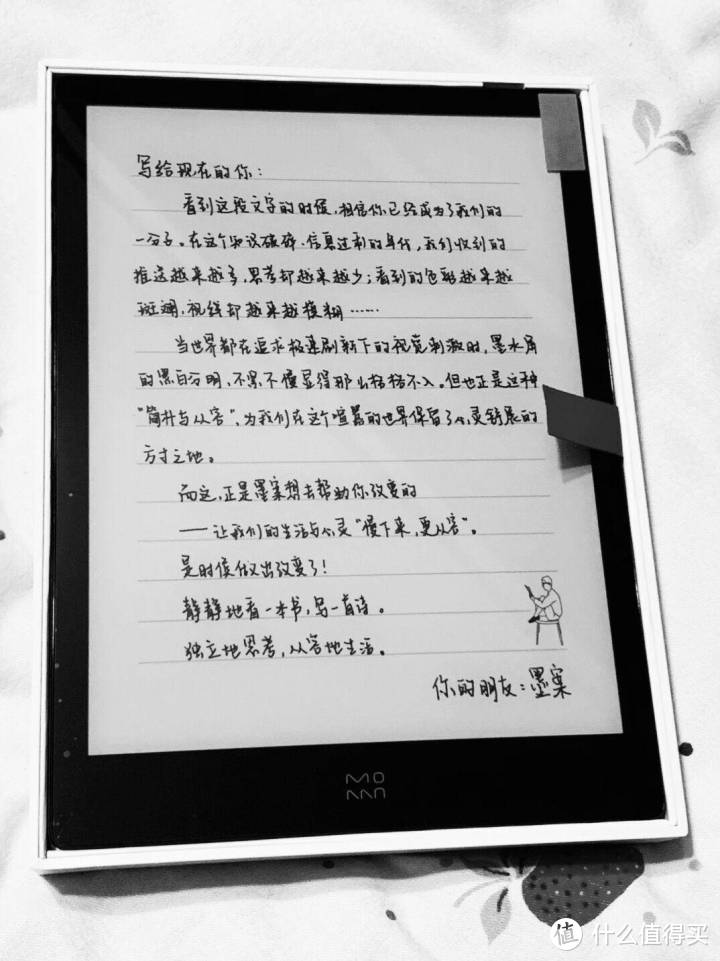 写给现在的你：
看到这段文字的时候，相信你已经成为了我们的
一分子。在这个知识破碎、信息过剩的年代，我们收到的
推送越来越多，思考却越来越少；看到的色彩越来越
斑斓，视线却越来越模糊……
当世界都在追求极速刷新下的视觉刺激时，墨水屏
的黑白分明，不累不慢显得那么格格不入。但也正是这种
“简朴与从容”，为我们在这个喧嚣的世界保留了心灵舒展的
方寸之地。
而这，正是墨案想去帮助你改变的
——让我们的生活与心灵“慢下来，更从容”。
是时候做出改变了！
静静地看一本书，写一首诗。
独立地思考，从容地生活。
你的朋友：墨案
MOAAN
值 什么值得买